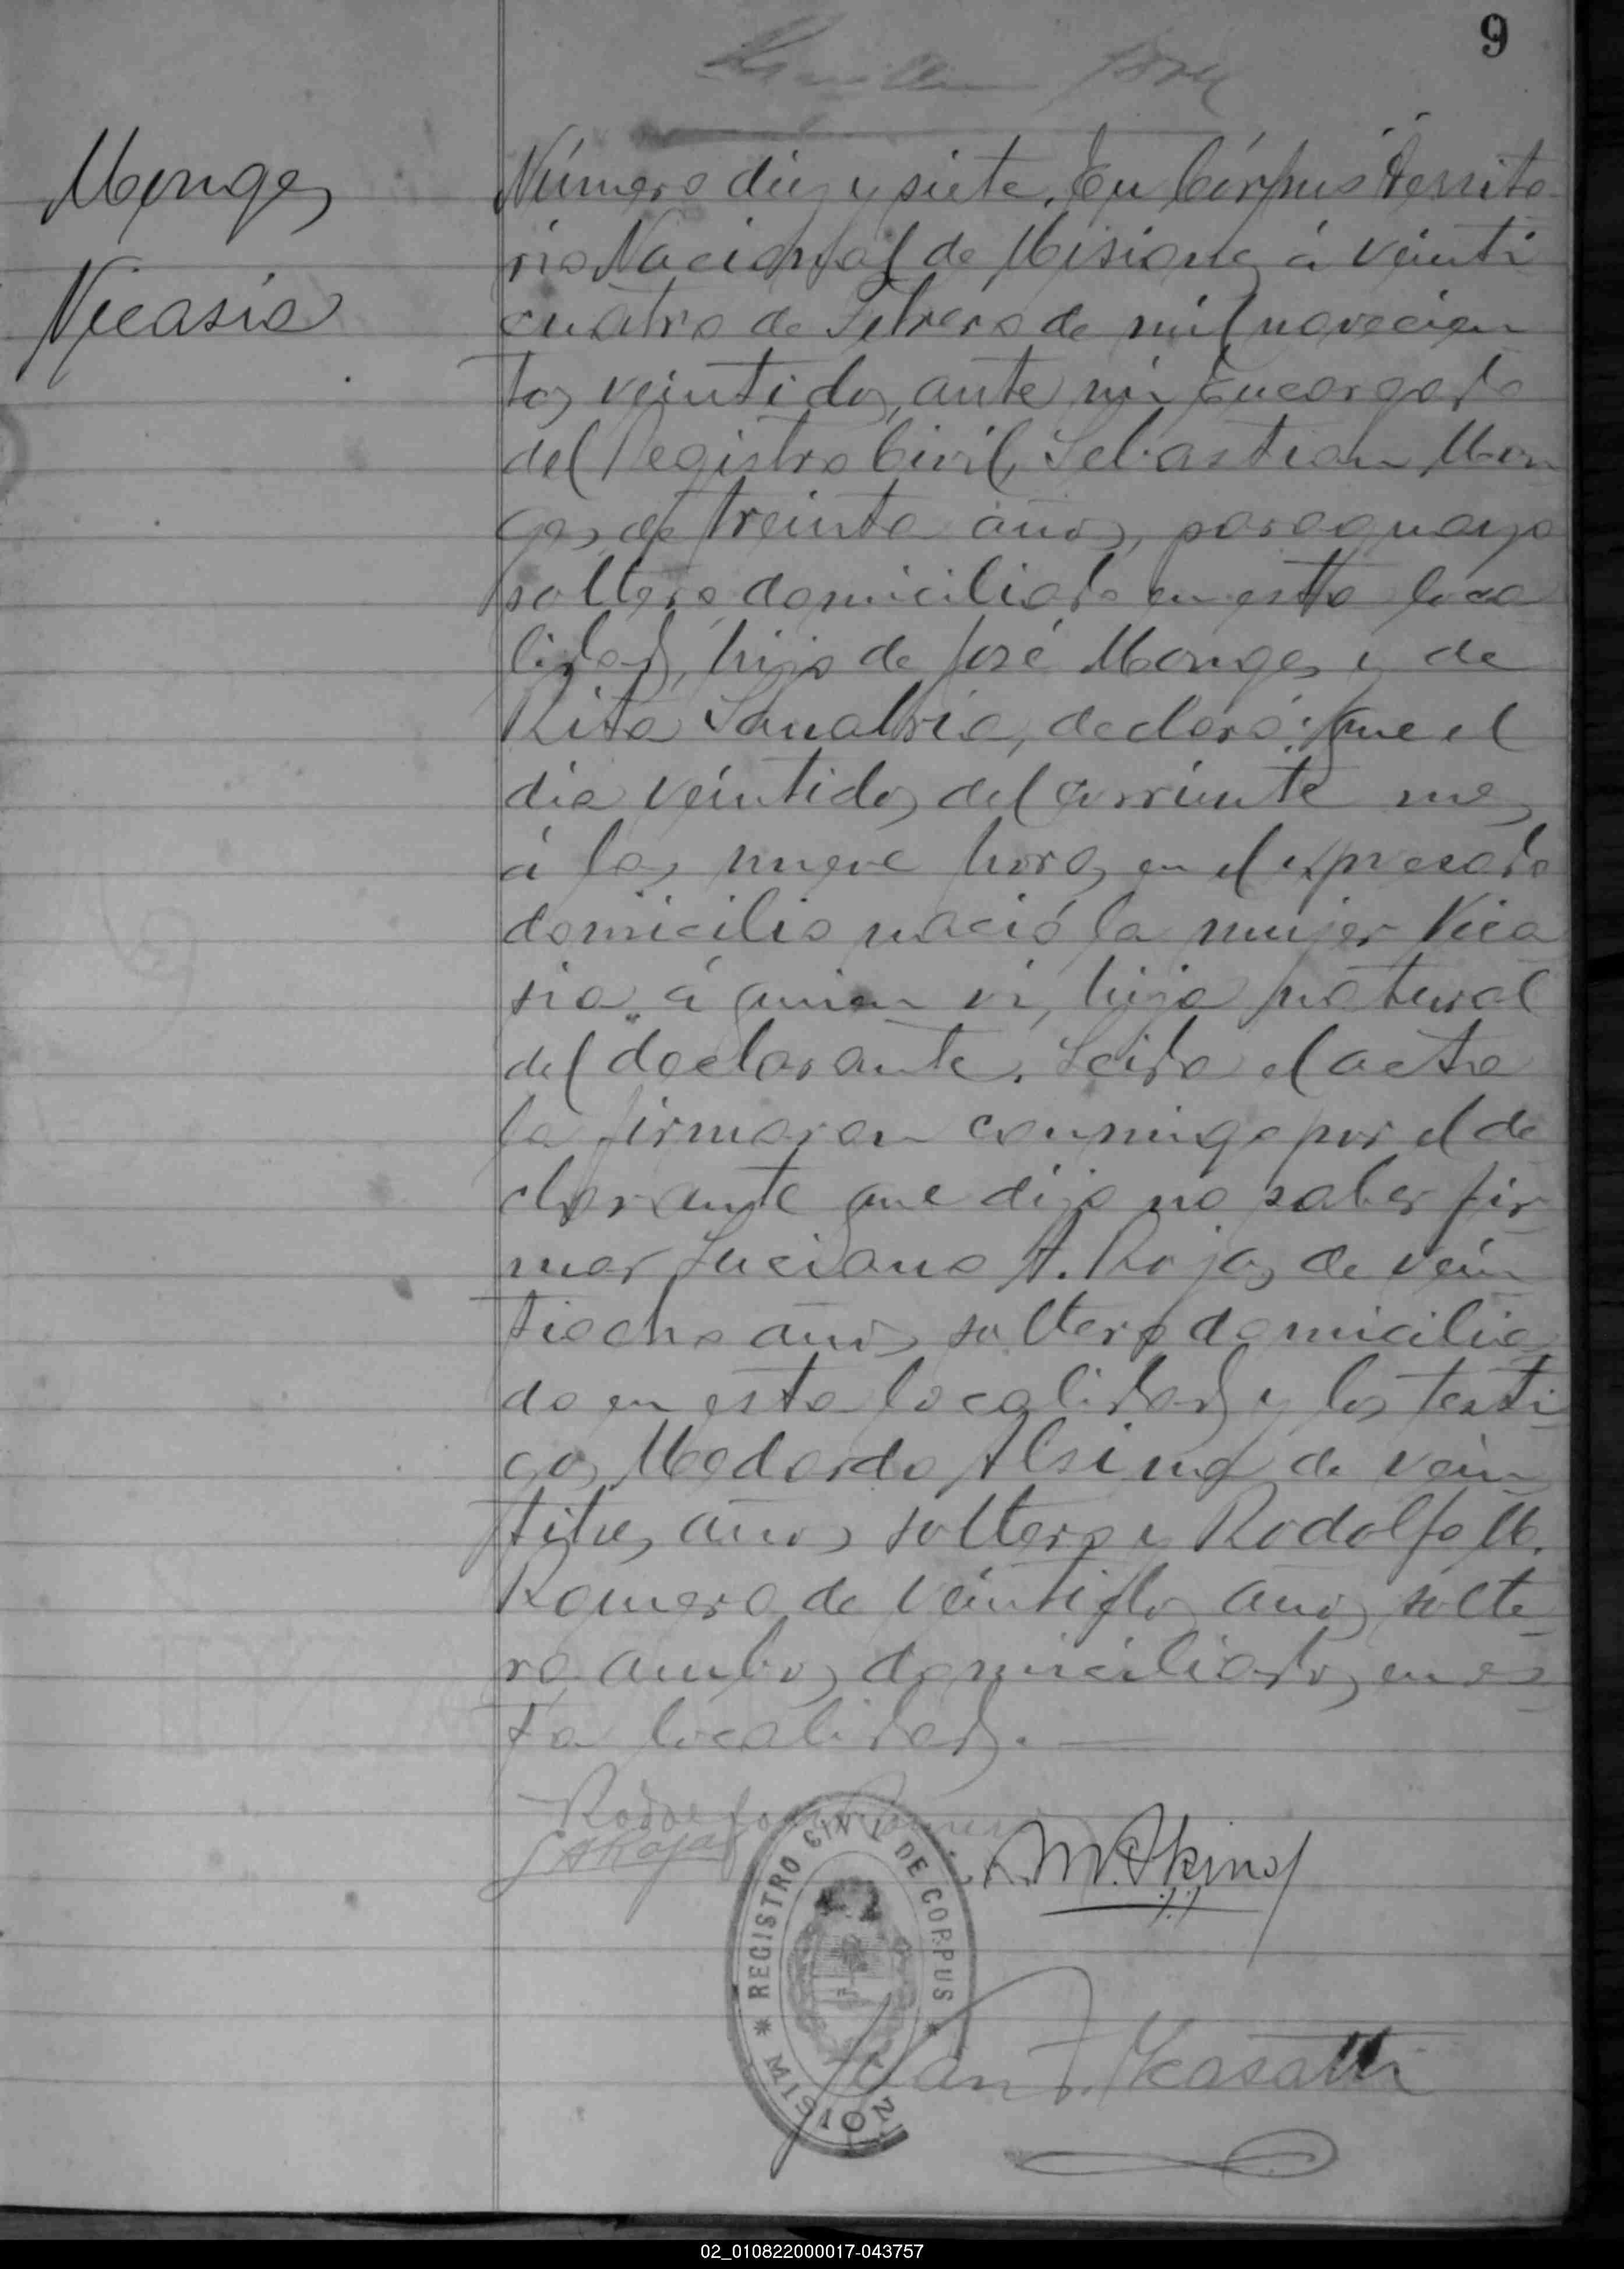 9
Monges
Nicasia
Número diez y siete. En Córpus Territo
rio Nacional de Misiones á veinti
cuatro de Febrero de mil novecien
tos veintidos, ante mí Encargado
del Registro Civil, Sebastian Mon
ges, de treinta años, paraguayo
soltero domiciliado en esta loca
lidad, hijo de José Monges y de
Rita Sanabria, declaró: Que el
dia veintidos del corriente mes
á las nueve horas en el expresado
domicilio nació la mujer Nica
sia á quien vi, hija natural
del declarante. Leida el acta
la firmaron conmigo por el de
clarante que dijo no saber fir
mar Luciano A. Rojas de vein
tiocho años soltero domicilia
do en esta localidad y los testi
gos Medardo Alsina de vein
titres años soltero y Rodolfo M.
Romero de veintidos años solte
ro ambos domiciliados en es
ta localidad.
Rodolfo Romero
L A Rojas
REGISTRO CIVIL DE CORPUS
MISIONES
Juan F.
02_010822000017-043757